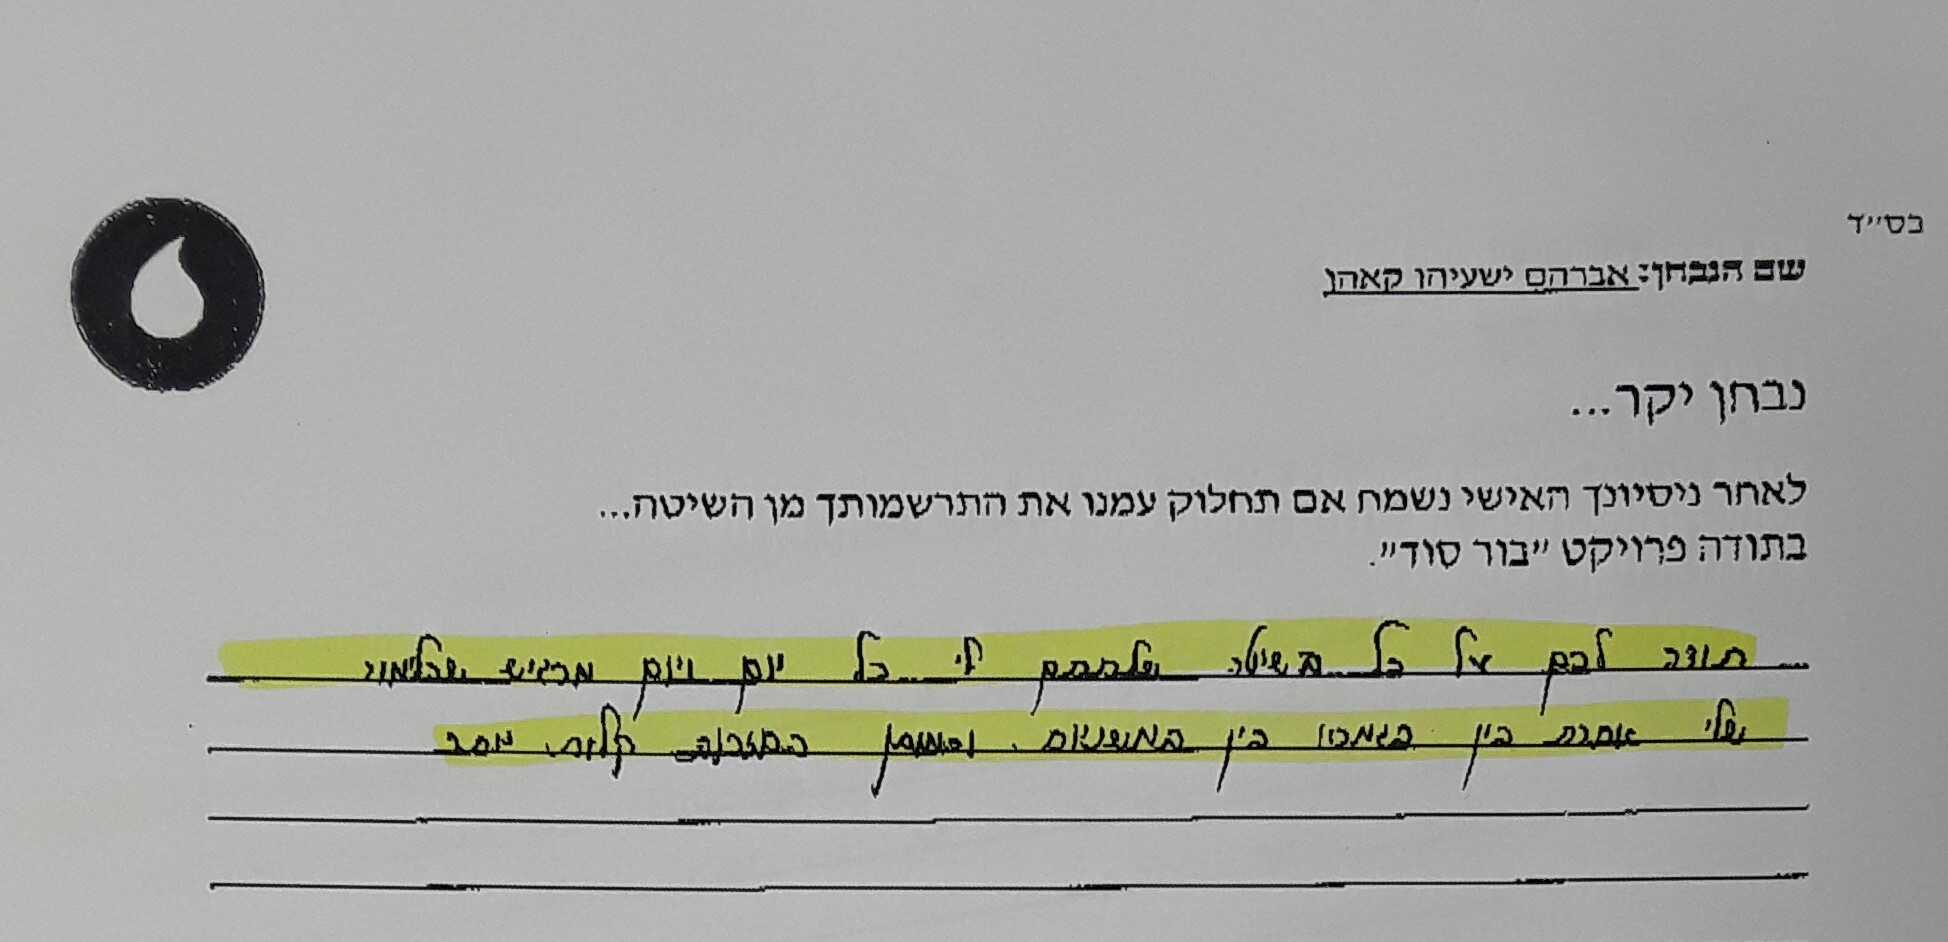 בס״ד
שם הנבחן: אברהם ישעיהו קאהן
נבחן יקר...
לאחר ניסיונך האישי נשמח אם תחלוק עמנו את התרשמותך מן השיטה...
בתודה פרויקט ״בור סוד״.
תודה לכם על כל השיטה שלמדתם לי כל יום ויום מרגיש שהלימוד
שלי אחרת בין בגמרא בין במשניות.